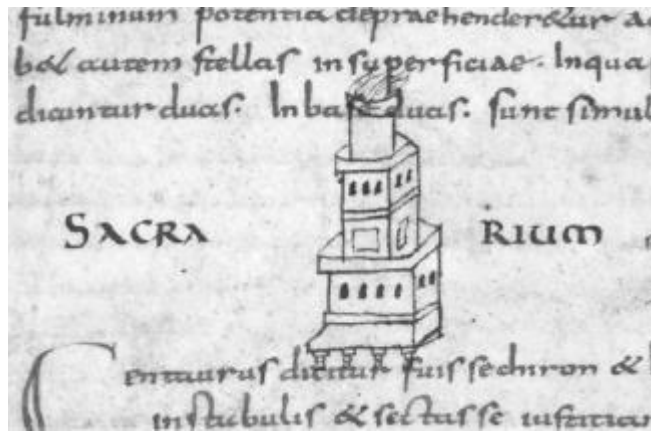 fulminum potentia depraehender&ur
b& autem stellas in superficiae. Inqua
dicuntur duas. In base duas. sunt simul
SACRA RIUM
Centaurus dicitur fuisse chiron &
instabulis & sectasse iustitiam